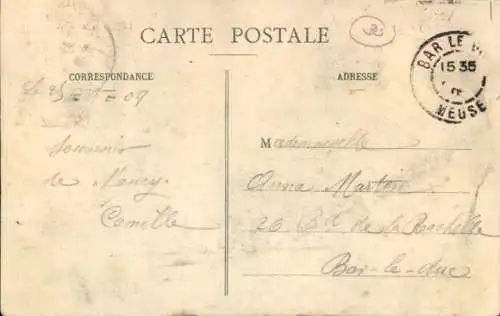 CARTE POSTALE
CORRESPONDANCE
ADRESSE
BAR LE
15 35
MEUSE
Le 25
09
Souvenir
de Nancy
Camille
Mademoiselle
Anna Martin
26 Bd de la Rochelle
Bar-le-duc